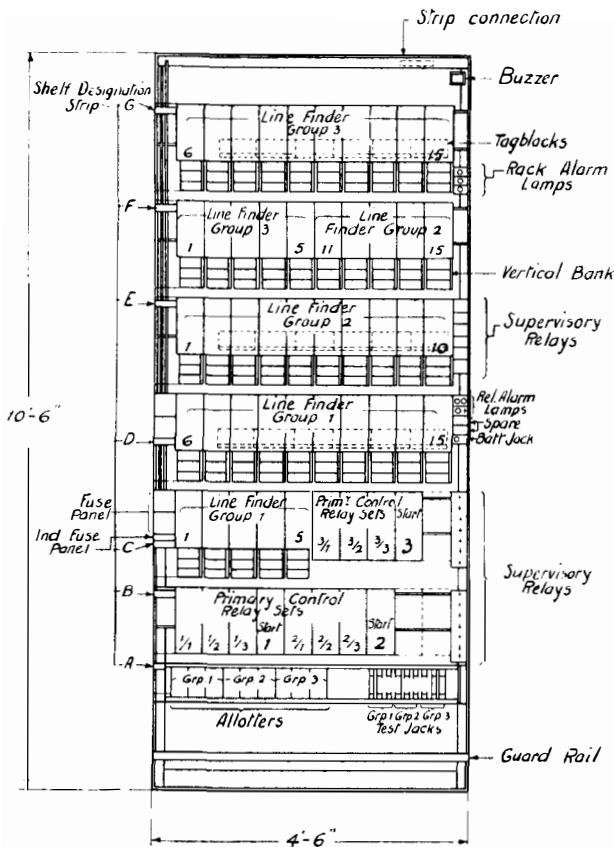 Strip connection
Buzzer
Shelf Designation
Strip
G
Line Finder
Group 3
6
15
Tagblocks
Rack Alarm
Lamps
F
Line Finder
Group 3
1
5
Line
Finder Group 2
11
15
Vertical Bank
E
Line Finder
Group 2
1
10
Supervisory
Relays
10'-6"
Line Finder
Group 1
6
15
Rel. Alarm
Lamps
Spare
Batt Jack
D
Fuse
Panel
Ind Fuse
Panel
C
Line Finder
Group 1
1
5
Prim'y Control
Relay Sets
3/1
3/2
3/3
Start
3
Supervisory
Relays
B
Primary Control
Relay Sets
1/1
1/2
1/3
Start
1
2/1
2/2
2/3
Start
2
A
Grp. 1
Grp. 2
Grp. 3
Allotters
Grp 1 Grp 2 Grp 3
Test Jacks
Guard Rail
4'-6"